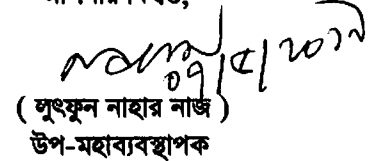 ০৭/৫/২০১৭
( লুৎফুন নাহার নাজ )
উপ-মহাব্যবস্থাপক